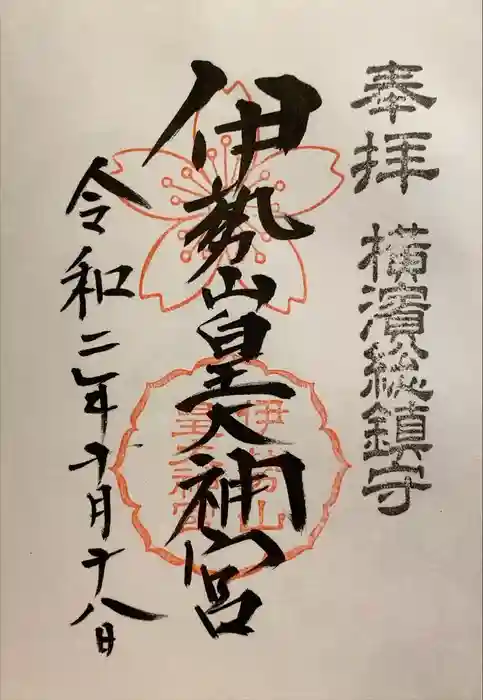 奉拝 横濱総鎮守
伊勢山皇大神宮
伊勢山皇大神宮
令和二年十月十八日